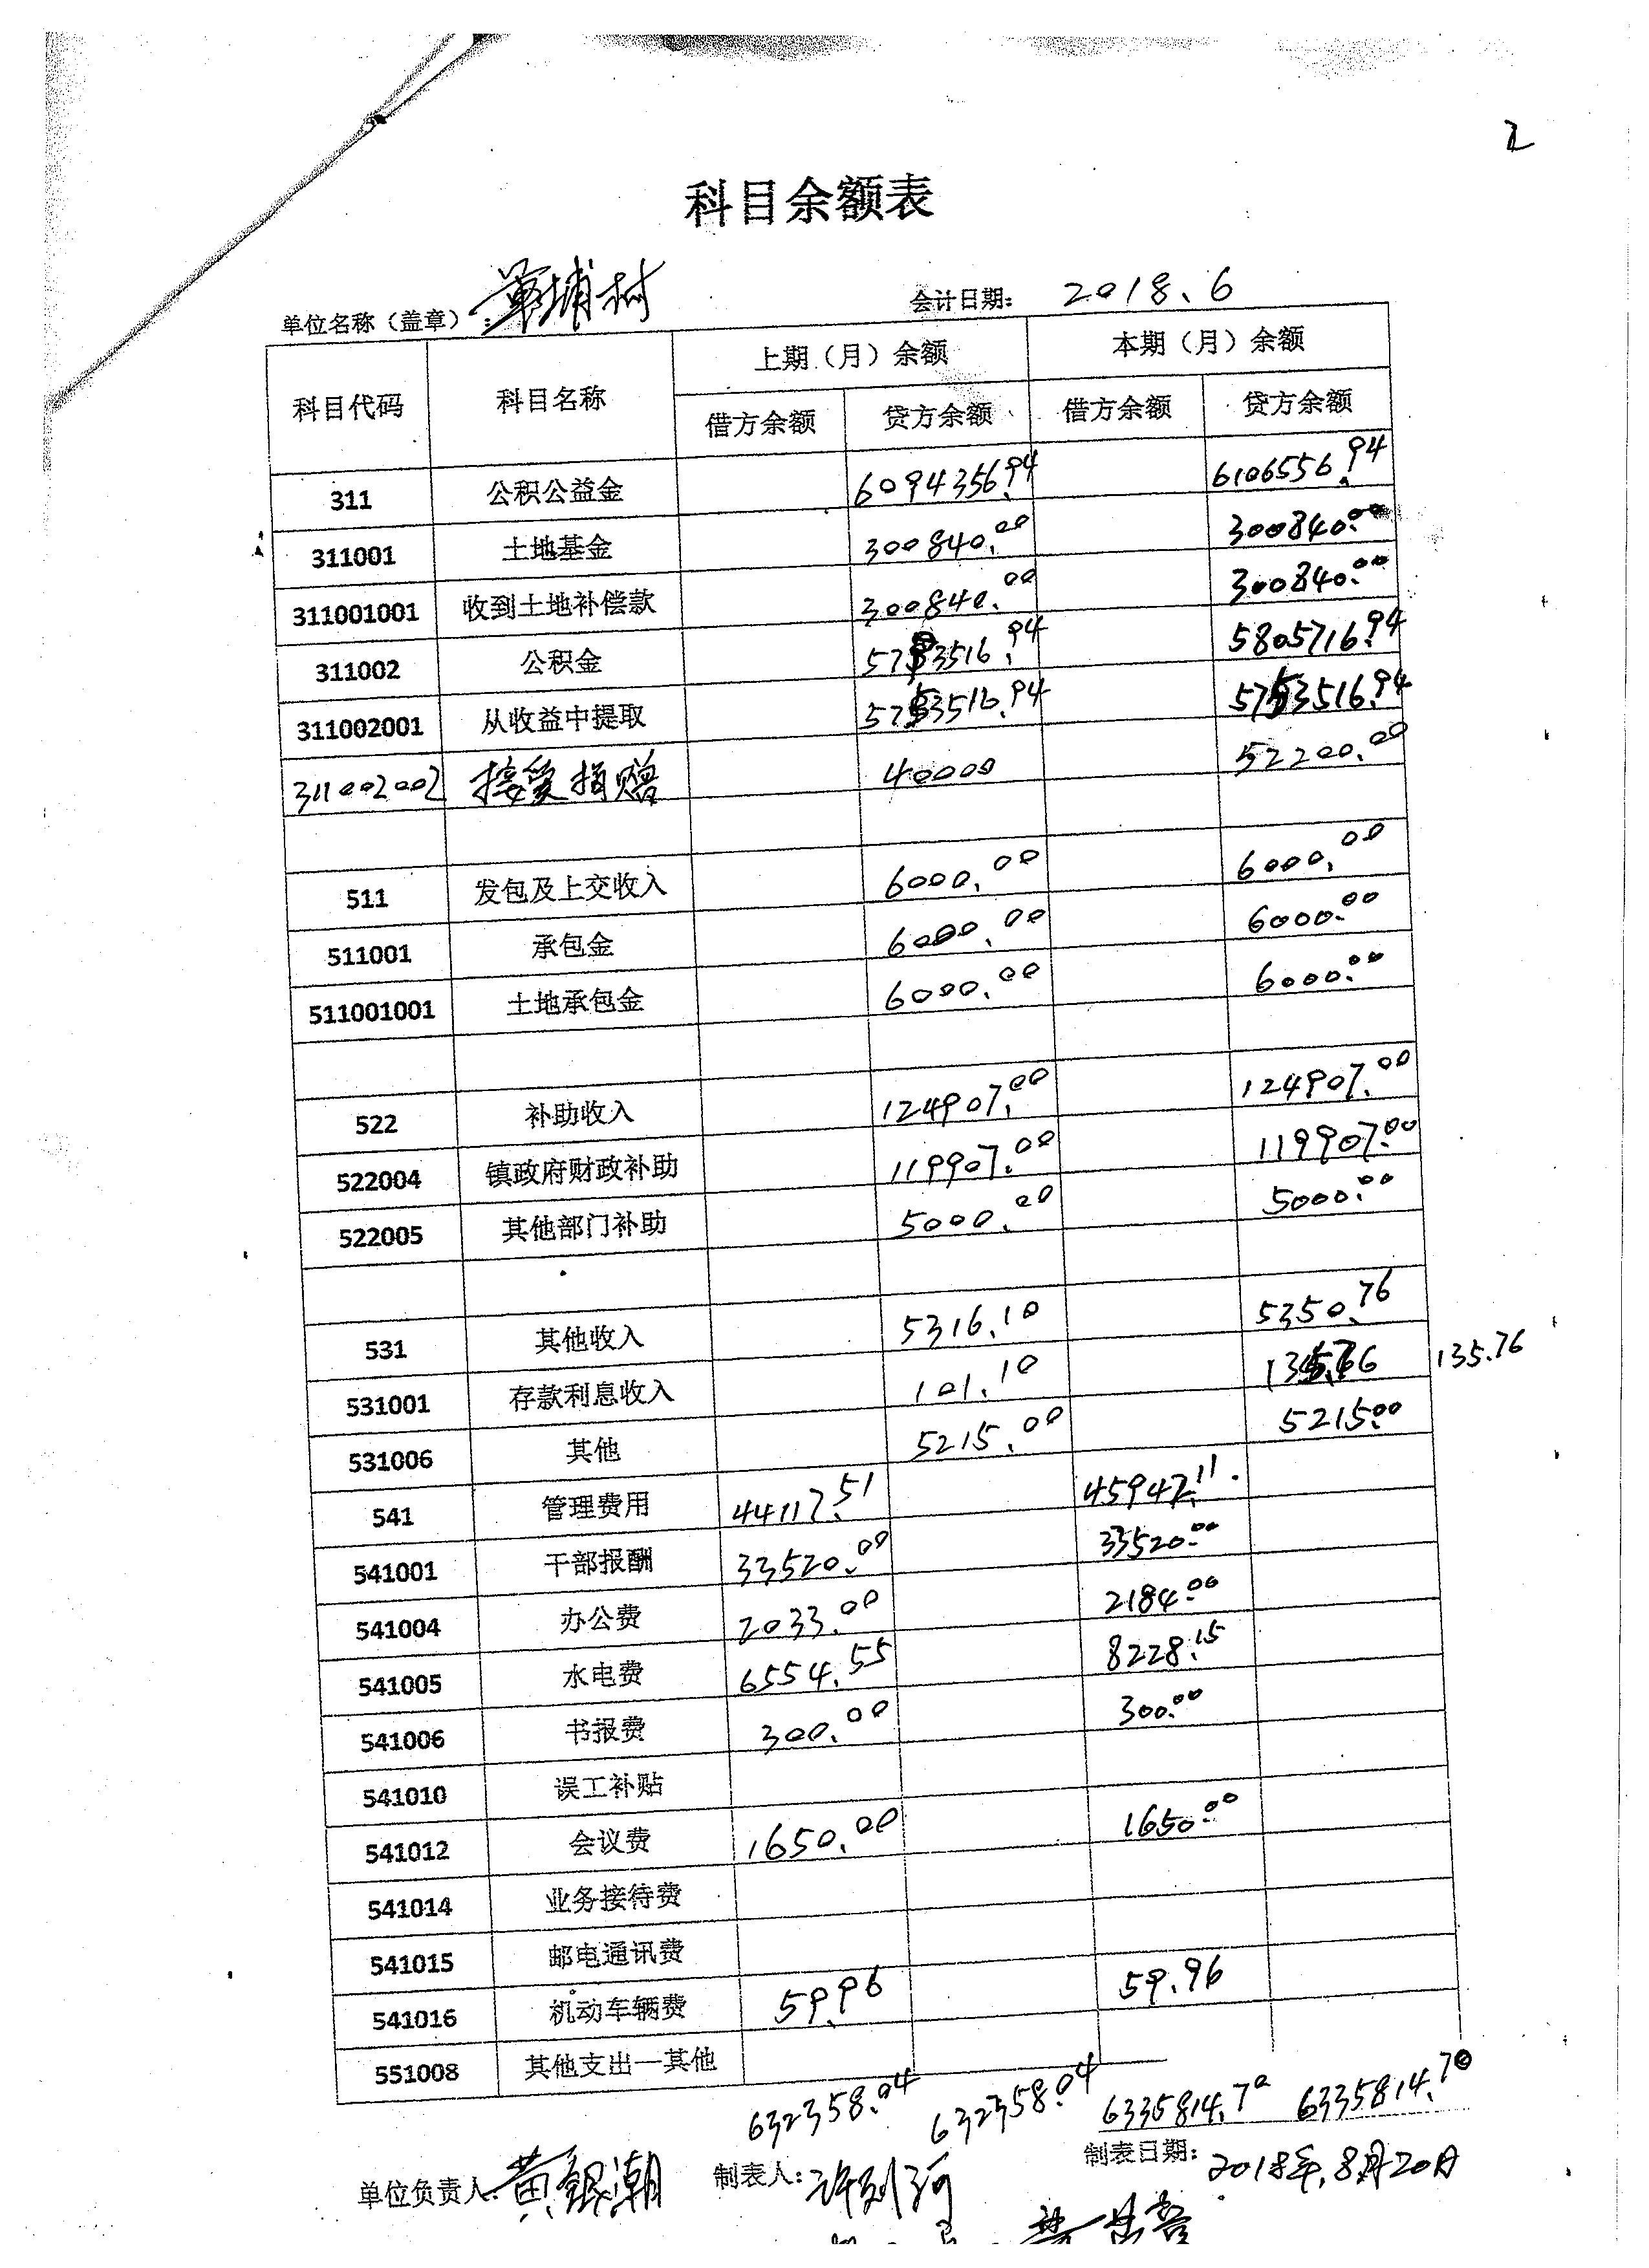 2
科目余额表
单位名称（盖章）：埔村 会计日期： 2018.6
科目代码 科目名称 上期（月）余额 本期（月）余额
借方余额 贷方余额 借方余额 贷方余额
311 公积公益金 6094356.94 6106556.94
311001 土地基金 300840.00 300840.00
311001001 收到土地补偿款 300840.00 300840.00
311002 公积金 5793516.94 5805716.94
311002001 从收益中提取 5753516.94 5753516.94
311002002 接受捐赠 40000 52200.00
511 发包及上交收入 6000.00 6000.00
511001 承包金 6000.00 6000.00
511001001 土地承包金 6000.00 6000.00
522 补助收入 124907.00 124907.00
522004 镇政府财政补助 119907.00 119907.00
522005 其他部门补助 5000.00 5000.00
531 其他收入 5316.10 5350.76
531001 存款利息收入 101.10 135.76 135.76
531006 其他 5215.00 5215.00
541 管理费用 44117.51 45942.11
541001 干部报酬 33520.00 33520.00
541004 办公费 2033.00 2184.00
541005 水电费 6554.55 8228.15
541006 书报费 300.00 300.00
541010 误工补贴
541012 会议费 1650.00 1650.00
541014 业务接待费
541015 邮电通讯费
541016 机动车辆费 59.96 59.96
551008 其他支出一其他
632358.04 632358.04 6335814.70 6335814.70
单位负责人：黄银潮 制表人：许 河 制表日期： 2018年.8月20日